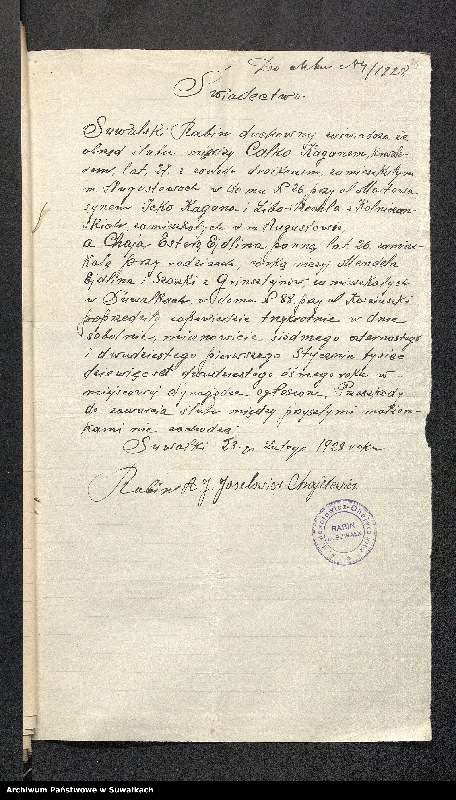 Do aktu №7/1928
Świadectwo.
Suwalski Rabin duchowny zaświadcza że
obrząd ślubu między Całko Kaganem, kawale-
rem, lat, 27. z zawodu drożkarzem, zamieszkałym
w m Augustowach w domu № 26 przy ul Mostowa
synem Icko Kagana i Liby-Rochla z
zamieszkałych w m Augustowie,
a Chaja Esterą Ejdliną panną lat 26 zamiesz-
kałą przy rodzicach córką niej Mendela
Ejdlina i z Grinsztejnów, zamieszkałych
w Suwałkach, w domu № 88 przy ul Kościuszki
poprzedziły zapowiedzie trzykrotnie w dnie
sobotnie, mianowicie siódmego czternastego
i dwudziestego pierwszego Stycznia tysiąc
dziewięćset dwudziestego ósmego roku w
miejscowej synagodze ogłoszone. Przeszkody
do zawarcia ślubu między przyszłymi małżon-
kami nie zachodzą.
Suwałki 23-go Lutego 1928 roku
Rabin A J. Joselewicz Chajtewicz
RABIN
Archiwum Państwowe w Suwałkach